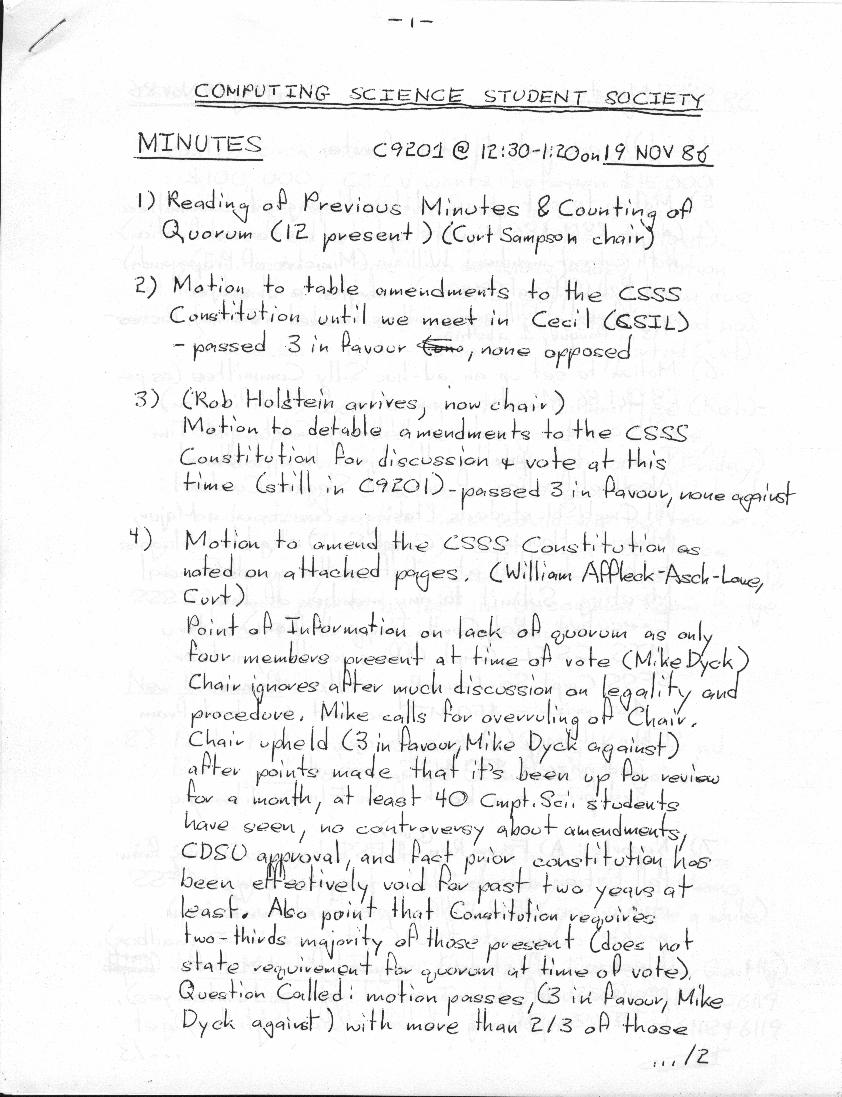 -1-
COMPUTING SCIENCE STUDENT SOCIETY
MINUTES C9201 @ 12:30-1:20 on 19 NOV 86
1) Reading of Previous Minutes & Counting of
Quorum (12 present) (Curt Sampson chair)
2) Motion to table amendments to the CSSS
Constitution until we meet in Cecil (CSIL)
- passed 3 in favour, none opposed
3) (Rob Holstein arrives, now chair)
Motion to detable amendments to the CSSS
Constitution for discussion & vote at this
time (still in C9201) - passed 3 in favour, none against
4) Motion to amend the CSSS Constitution as
noted on attached pages. (William Affleck-Asch-Lowe,
Curt)
Point of Information on lack of quorum as only
four members present at time of vote (Mike Dyck)
Chair ignores after much discussion on legality and
procedure. Mike calls for overruling of Chair.
Chair upheld (3 in favour, Mike Dyck against)
after points made that it's been up for review
for a month, at least 40 Cmpt. Sci. students
have seen, no controversy about amendments,
CDSU approval, and fact prior constitution has
been effectively void for past two years at
least. Also point that Constitution requires
two-thirds majority of those present (does not
state requirement for quorum at time of vote).
Question Called: motion passes, (3 in favour, Mike
Dyck against) with more than 2/3 of those
.../2